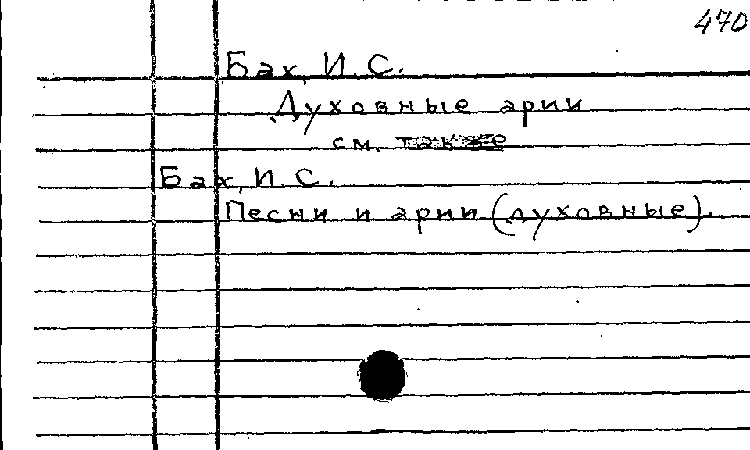 470
Бах, И. С.
Духовные арии
см. также
Бах, И. С.
Песни и арии (духовные).